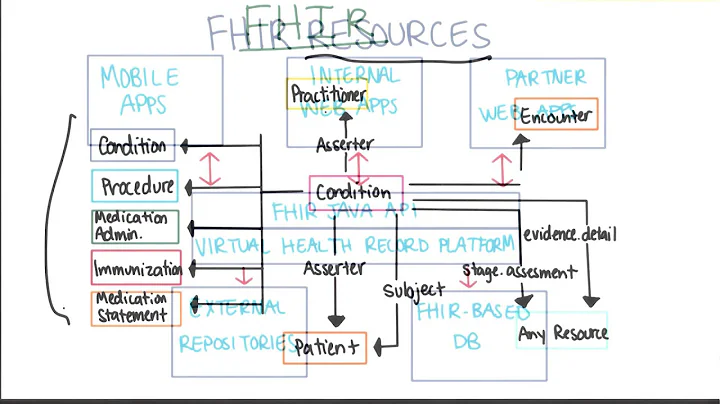 FHIR
FHIR RESOURCES
MOBILE
APPS
INTERNAL
WEB APPS
PARTNER
WEB APPS
Practitioner
Encounter
Condition
Asserter
Procedure
Condition
FHIR JAVA API
Medication
Admin.
VIRTUAL HEALTH RECORD PLATFORM
evidence.detail
Immunization
Asserter
stage.assesment
Subject
Medication
Statement
EXTERNAL
REPOSITORIES
FHIR-BASED
DB
Any Resource
Patient